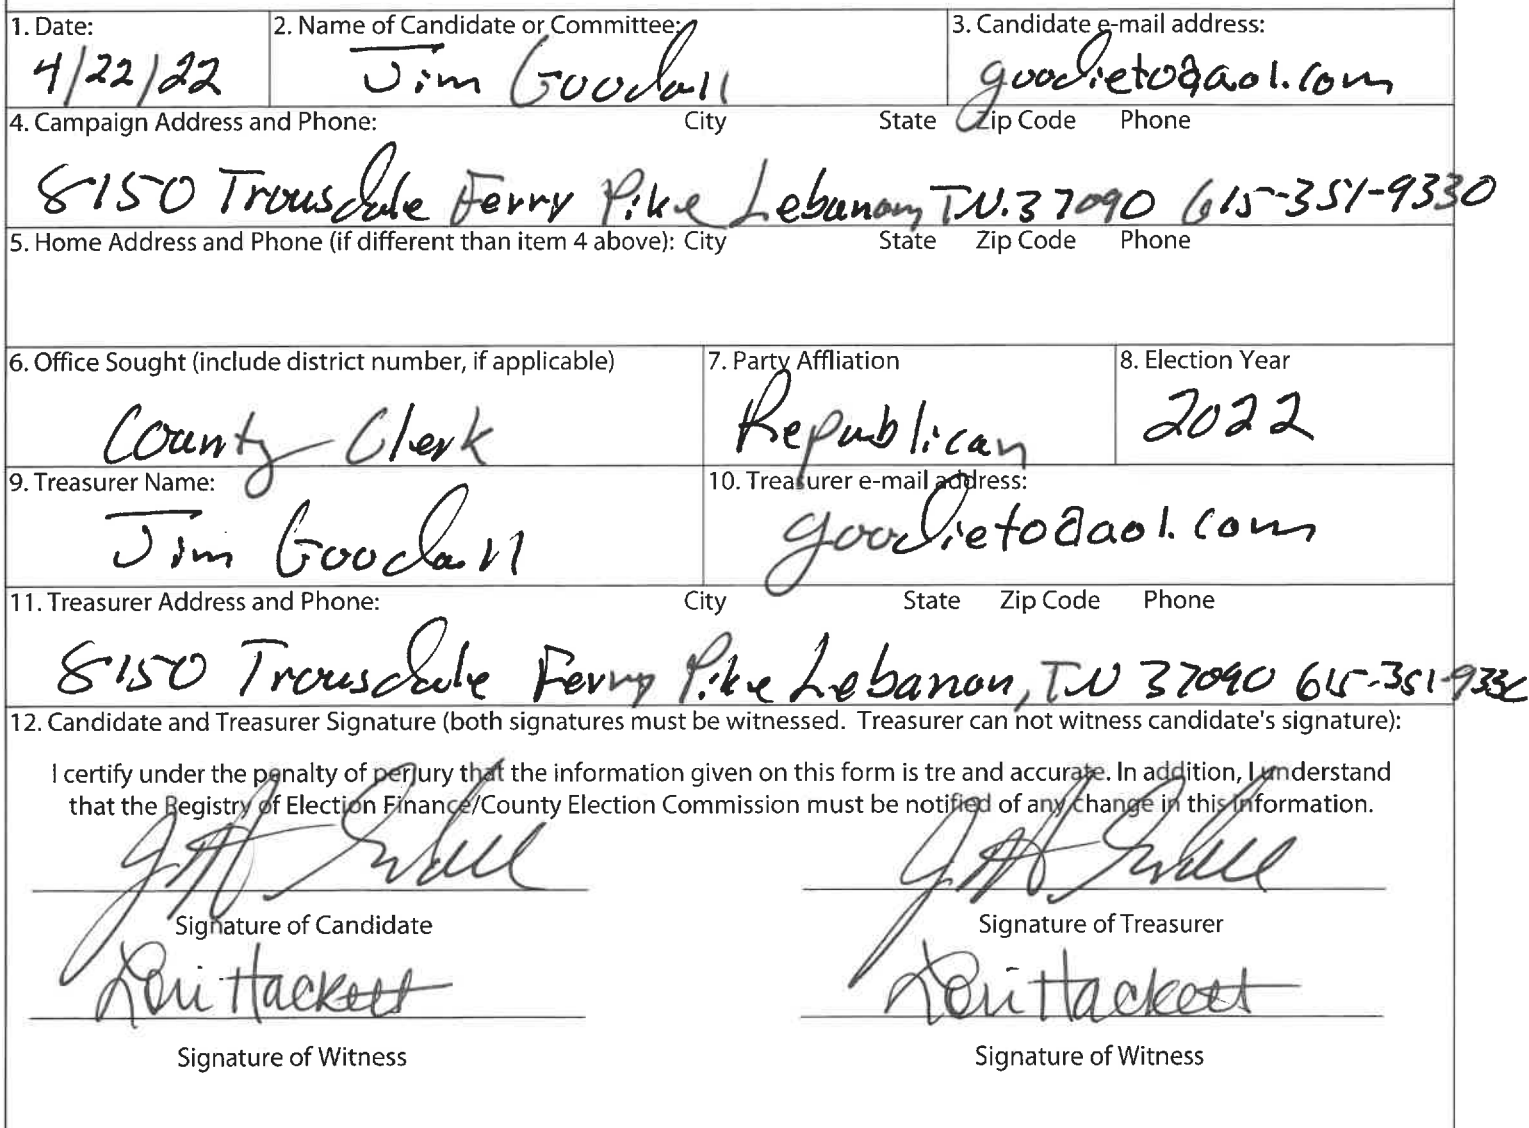 1. Date: 2. Name of Candidate or Committee: 3. Candidate e-mail address:
4/22/22 Jim Goodall goodieto@aol.com
4. Campaign Address and Phone: City State Zip Code Phone
8150 Trousdale Ferry Pike Lebanon, TN. 37090 615-351-9330
5. Home Address and Phone (if different than item 4 above): City State Zip Code Phone
6. Office Sought (include district number, if applicable) 7. Party Affliation 8. Election Year
County Clerk Republican 2022
9. Treasurer Name: 10. Treasurer e-mail address:
Jim Goodall goodieto@aol.com
11. Treasurer Address and Phone: City State Zip Code Phone
8150 Trousdale Ferry Pike Lebanon, TN 37090 615-351-9330
12. Candidate and Treasurer Signature (both signatures must be witnessed. Treasurer can not witness candidate's signature):
I certify under the penalty of perjury that the information given on this form is tre and accurate. In addition, I understand
that the Registry of Election Finance/County Election Commission must be notified of any change in this information.
Signature of Candidate Signature of Treasurer
Lori Hackett Lori Hackett
Signature of Witness Signature of Witness